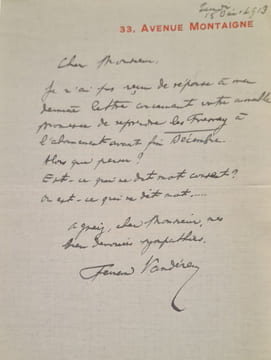 Lundi
15 Dec 1913
33, AVENUE MONTAIGNE
Cher Monsieur,
Je n'ai pas reçu de réponse à ma
dernière lettre concernant votre aimable
promesse de reprendre les
à l'abonnement avant fin Décembre.
Alors que penser ?
Est-ce qui ne dit mot consent ?
Ou est-ce qui ne dit mot.....
Agréez, cher Monsieur, mes
bien dévouées sympathies.
Fernand Vandérem